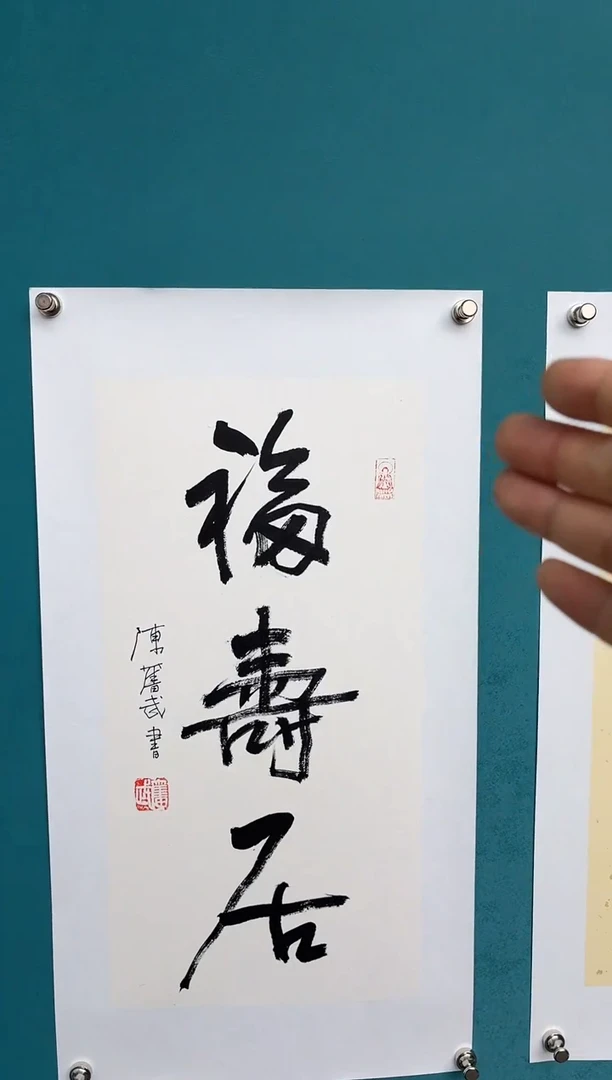 福壽居
陳舊武書